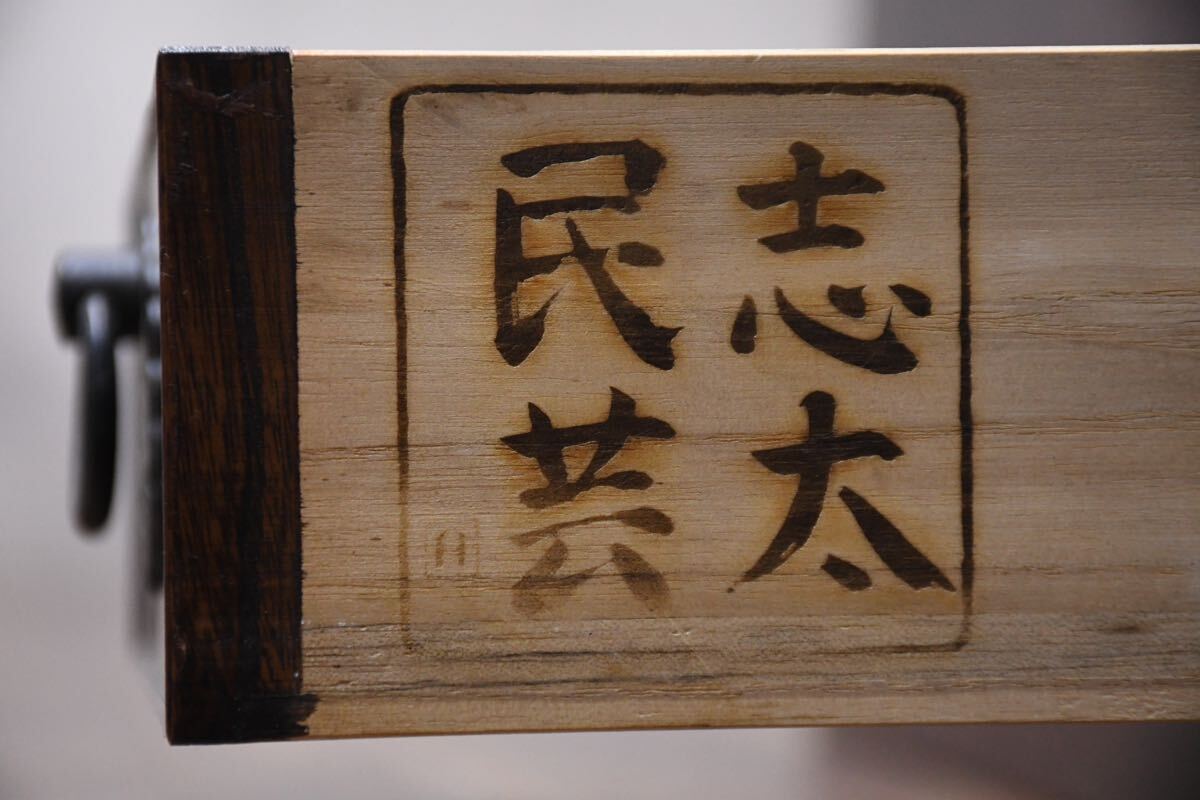 志太
民芸